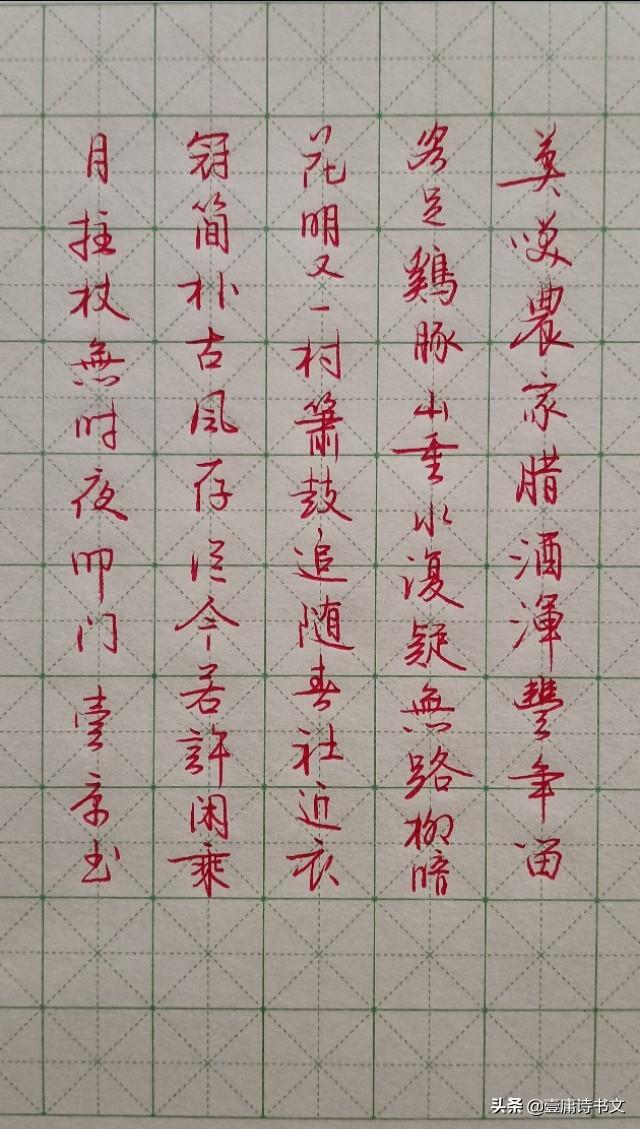 莫唉農家腊酒渾豐年畄
客足鷄豚山重水復疑無路柳暗
花明又一村簫鼓追随春社近衣
冠简朴古風存従今若許闲乘
月拄杖無时夜叩门壹庸书
头条 @壹庸诗书文